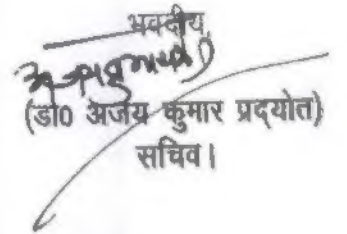 भवदीय,
(डा0 अजय कुमार प्रद्योत)
सचिव।